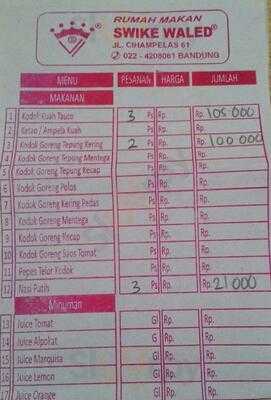 RUMAH MAKAN
SWIKE WALED®
JL. CIHAMPELAS 61
022 - 4208061 BANDUNG
MENU PESANAN HARGA JUMLAH
MAKANAN
1 Kodok Kuah Tauco 3 Ps Rp. Rp. 105 000
2 Ketao / Ampela Kuah Ps Rp. Rp.
3 Kodok Goreng Tepung Kering 2 Ps Rp. Rp. 100 000
4 Kodok Goreng Tepung Mentega Ps Rp. Rp.
5 Kodok Goreng Tepung Kecap Ps Rp. Rp.
6 Kodok Goreng Polos Ps Rp. Rp.
7 Kodok Goreng Kering Pedas Ps Rp. Rp.
8 Kodok Goreng Mentega Ps Rp. Rp.
9 Kodok Goreng Kecap Ps Rp. Rp.
10 Kodok Goreng Saos Tomat Ps Rp. Rp.
11 Pepes Telor Kodok Ps Rp. Rp.
12 Nasi Putih 3 Ps Rp. Rp. 21 000
Minuman
13 Juice Tomat Gl Rp. Rp.
14 Juice Alpokat Gl Rp. Rp.
15 Juice Marquisa Gl Rp. Rp.
16 Juice Lemon Gl Rp. Rp.
17 Juice Orange Gl Rp. Rp.